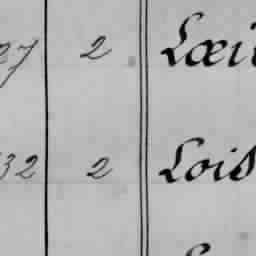 27 2 Lœi
32 2 Lois